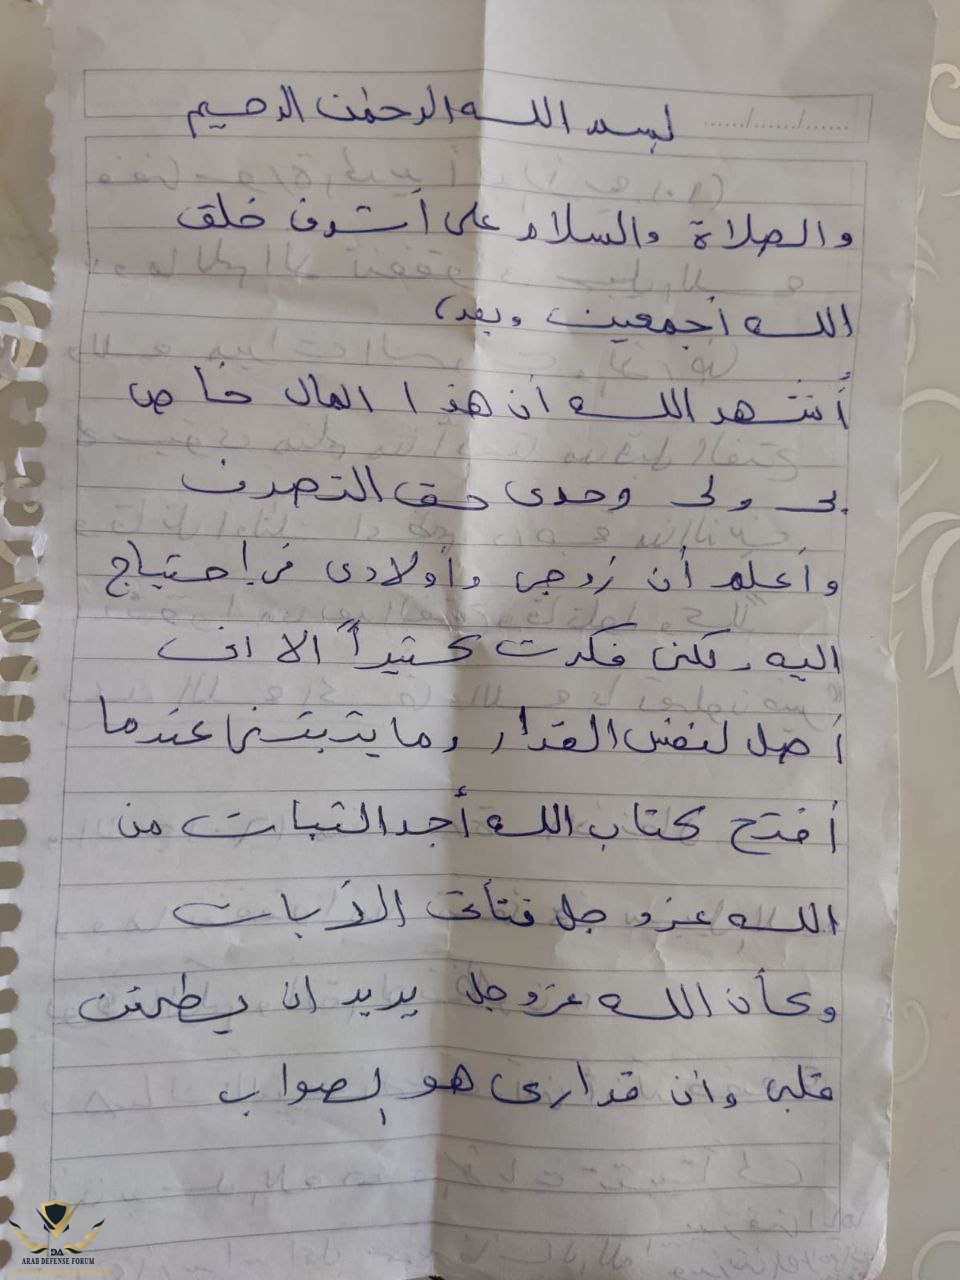 بسم الله الرحمن الرحيم
والصلاة والسلام على أشرف خلق
الله أجمعين وبعد،
أُشهد الله أن هذا المال خاص
بى ولى وحدى حق التصرف
وأعلم أن زوجى وأولادى فى إحتياج
اليه ولكنى فكرت كثيراً الا انى
أصل لنفس القرار وما يثبتنى عندما
أفتح كتاب الله أجد الثبات من
الله عز وجل فتأتى الأيات
وكأن الله عز وجل يريد ان يطمئن
قلبى وأن قرارى هو الصواب
DA
ARAB DEFENSE FORUM